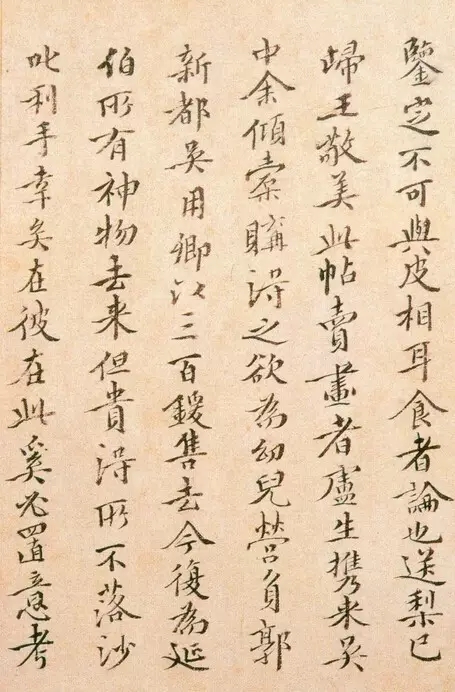 鑒定不可與皮相耳食者論也送梨已
歸王敬美此帖賣畫者盧生攜來吳
中余傾橐購得之欲為幼兒營負郭
新都吳用卿以三百鍰售去今復為延
伯所有神物去來但貴得所不落沙
叱利手幸矣在彼在此奚必置意考